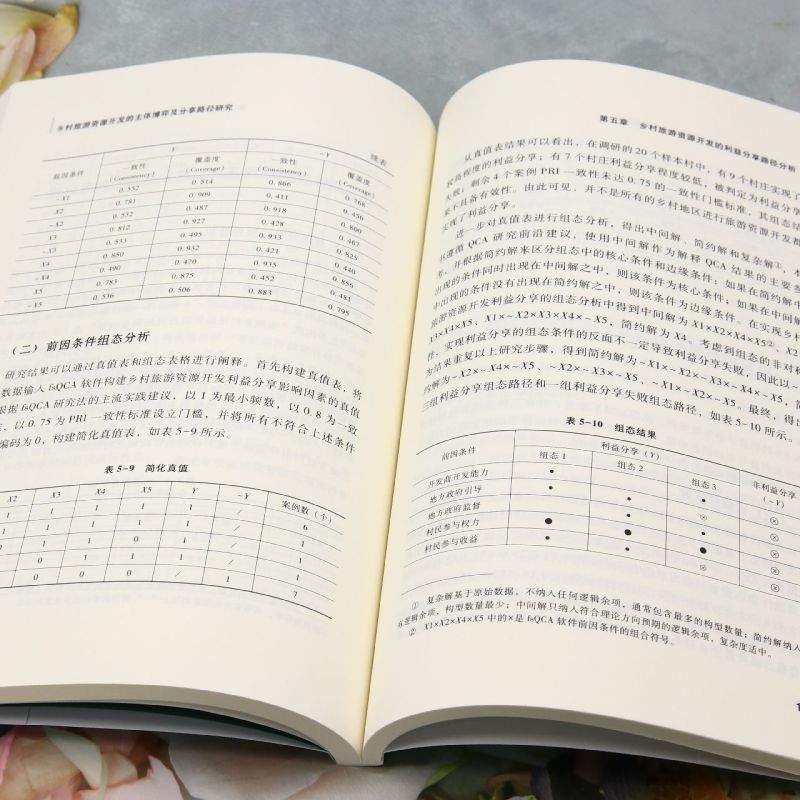 乡村旅游资源开发的主体博弈及分享路径研究
续表
前因条件 Y ~Y
一致性 (Consistency) 覆盖度 (Coverage) 一致性 (Consistency) 覆盖度 (Coverage)
~X1 0.552 0.514 0.866 0.768
X2 0.781 0.909 0.411 0.456
~X2 0.532 0.487 0.918 0.800
X3 0.812 0.927 0.428 0.467
~X3 0.533 0.495 0.933 0.825
X4 0.850 0.932 0.421 0.440
~X4 0.490 0.470 0.935 0.856
X5 0.783 0.875 0.452 0.481
~X5 0.536 0.506 0.883 0.795
(二) 前因条件组态分析
研究结果可以通过真值表和组态表格进行阐释。首先构建真值表，将
数据输入 fsQCA 软件构建乡村旅游资源开发利益分享影响因素的真值
根据 fsQCA 研究法的主流实践建议，以 1 为最小频数，以 0.8 为一致
，以 0.75 为 PRI 一致性标准设立门槛，并将所有不符合上述条件
编码为 0，构建简化真值表，如表 5-9 所示。
表 5-9 简化真值
X2 X3 X4 X5 Y ~Y 案例数（个）
1 1 1 1 1 / 6
1 1 1 1 1 / 1
1 1 0 1 1 / 1
0 0 1 1 1 / 1
0 0 0 0 / 1 7
第五章 乡村旅游资源开发的利益分享路径分析
从真值表结果可以看出，在调研的 20 个样本村中，有 9 个村庄实现了
较高程度的利益分享；有 7 个村庄利益分享程度较低，被判定为利益分享
失败；剩余 4 个案例 PRI 一致性未达 0.75 的一致性门槛标准，其组态结
果不具备有效性。由此可见，并不是所有的乡村地区进行旅游资源开发都
实现了利益分享。
进一步对真值表进行组态分析，得出中间解、简约解和复杂解①。本
书遵循 QCA 研究前沿建议，使用中间解作为解释 QCA 结果的主要参
，并根据简约解来区分组态中的核心条件和边缘条件：如果在简约解中
出现的条件同时出现在中间解之中，则该条件为核心条件；如果在中间解
中出现的条件没有出现在简约解之中，则该条件为边缘条件。在实现乡
旅游资源开发利益分享的组态分析中得到中间解为 X1×X2×X4×X5②、X2
X3×X4×X5、X1×~X2×X3×X4×X5，简约解为 X4。考虑到组态的非对称
性，实现利益分享的组态条件的反面不一定导致利益分享失败，因此以 ~
为结果重复以上研究步骤，得到简约解为 ~X1×~X2×~X3×~X4×~X5，
约解为 ~X2×~X4、~X2×~X3×~X5、~X1×~X2×~X5。最终，得出
三组利益分享组态路径和一组利益分享失败组态路径，如表 5-10 所示。
表 5-10 组态结果
前因条件 利益分享（Y） 非利益分享
组态 1 组态 2 组态 3 （~Y）
开发商开发能力 ● ● ⊗
地方政府引导 ● ● ⊗ ⊗
地方政府监督 ● ● ⊗
村民参与权力 ● ● ● ⊗
村民参与收益 ● ● ● ⊗
① 复杂解基于原始数据，不纳入任何逻辑余项，通常包含最多的构型数量；简约解纳入
有逻辑余项，构型数量最少；中间解只纳入符合理论方向预期的逻辑余项，复杂度适中。
② X1×X2×X4×X5 中的×是 fsQCA 软件前因条件的组合符号。